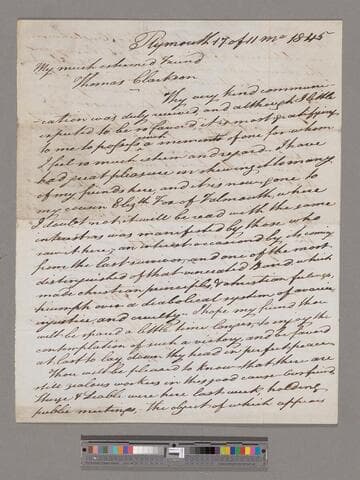 Plymouth 17 of 11 mo 1845
My much esteemed Friend
Thomas Clarkson
Thy very kind communi-
cation was duly received and although I little
expected to be so favored it is most gratifying
to me to possess a memento of one for whom
I feel so much esteem and regard. I have
had great pleasure in shewing it to many
of my friends here, and it is now gone to
my cousin Elizth Fox of Falmouth, where
I doubt not it will be read with the same
interest as was manifested by those who
saw it here, an interest occasioned by its coming
from the last survivor, and one of the most
distinguished of that venerated Band which
made christian principles & christian feelings,
triumph over a diabolical system of avarice
injustice and cruelty. I hope my friend thou
will be spared a little time longer, to enjoy the
contemplation of such a victory, and be favored
at last to lay down thy head in perfect peace.
Thou wilt be pleased to know that there are
still zealous workers in this good cause our friends
Sturge & Scoble were here last week, holding
public meetings, the object of which appears